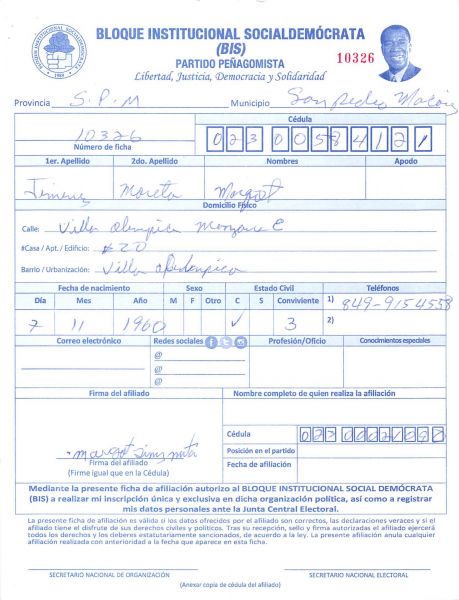 BLOQUE INSTITUCIONAL SOCIALDEMÓCRATA
(BIS)
PARTIDO PEÑAGOMISTA
Libertad, Justicia, Democracia y Solidaridad
10326
Provincia S.P.M Municipio San Pedro Macoris
Cédula
10326
Número de ficha
1er. Apellido 2do. Apellido Nombres Apodo
Jimenez Moreta Margot
Domicilio Físico
Calle: Villa Olimpica Manzana E
#Casa / Apt. / Edificio: #20
Barrio / Urbanización: Villa Olimpica
Fecha de nacimiento Sexo Estado Civil Teléfonos
Día Mes Año M F Otro C S Conviviente 1) 849-9154558
7 11 1960 ✓ 3 2)
Correo electrónico Redes sociales Profesión/Oficio Conocimientos especiales
@
@
@
Firma del afiliado Nombre completo de quien realiza la afiliación
Cédula
Posición en el partido
Fecha de afiliación
Firma del afiliado
(Firme igual que en la Cédula)
Mediante la presente ficha de afiliación autorizo al BLOQUE INSTITUCIONAL SOCIAL DEMÓCRATA
(BIS) a realizar mi inscripción única y exclusiva en dicha organización política, así como a registrar
mis datos personales ante la Junta Central Electoral.
La presente ficha de afiliación es válida si los datos ofrecidos por el afiliado son correctos, las declaraciones veraces y si el
afiliado tiene el disfrute de sus derechos civiles y políticos. Tras su recepción, sello y firma autorizados el afiliado ejercerá
todos los derechos y los deberes estatutariamente sancionados, de acuerdo a la ley. La presente afiliación anula cualquier
afiliación realizada con anterioridad a la fecha que aparece en esta ficha.
SECRETARIO NACIONAL DE ORGANIZACIÓN SECRETARIO NACIONAL ELECTORAL
(Anexar copia de cédula del afiliado)